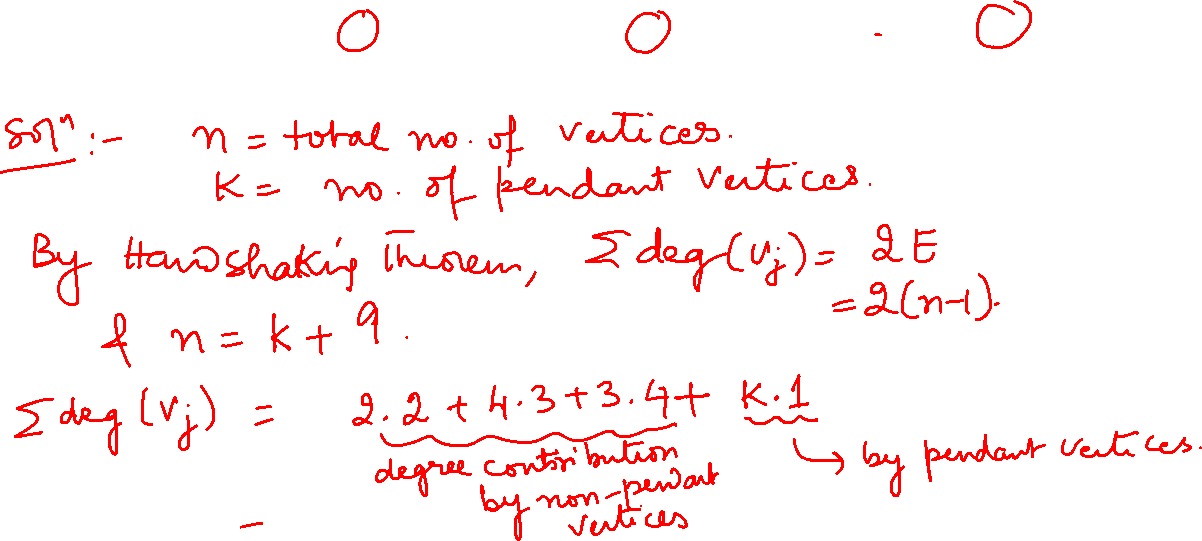 Solⁿ :- n = total no. of vertices.
K = no. of pendant vertices.
By Handshaking Theorem, Σ deg(Vj) = 2E
= 2(n-1).
& n = k + 9.
Σ deg (Vj) = 2.2 + 4.3 + 3.4 + K.1
degree contribution
by non-pendant
vertices
→ by pendant vertices.